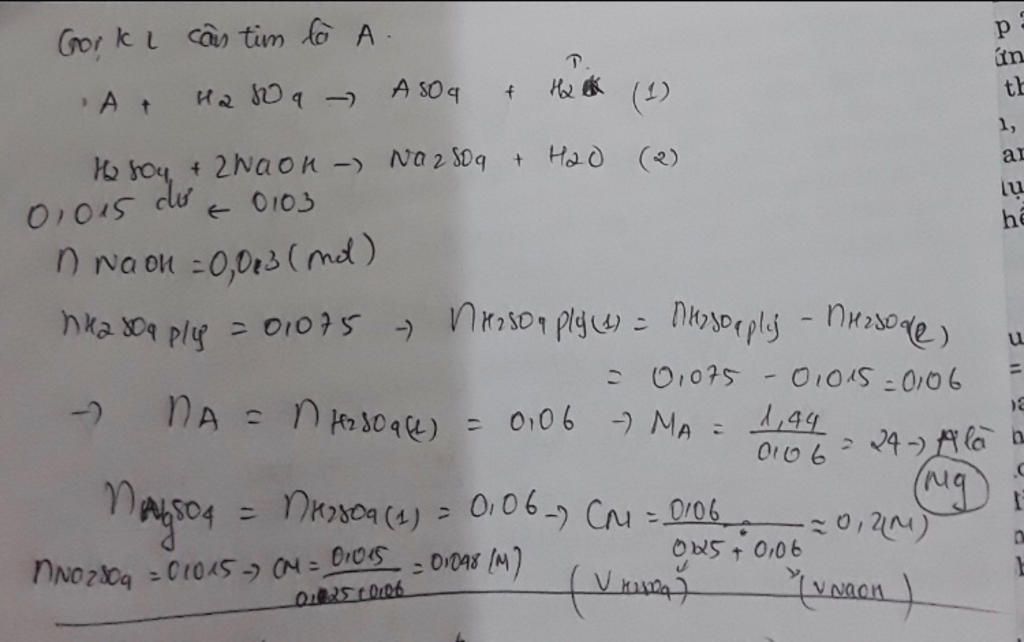 Gọi KL cần tìm là A.
A + H2SO4 → ASO4 + H2 ↑ (1)
H2SO4 + 2NaOH → Na2SO4 + H2O (2)
0,015 dư ← 0,03
n NaOH = 0,03 (mol)
nH2SO4 pứ = 0,075 → nH2SO4 pứ(1) = nH2SO4 pứ - nH2SO4(2)
= 0,075 - 0,015 = 0,06
→ nA = nH2SO4(1) = 0,06 → MA = 1,44/0,06 = 24 → A là
Mg
nMgSO4 = nH2SO4(1) = 0,06 → CM = 0,06/0,25 + 0,06 = 0,2(M)
nNa2SO4 = 0,015 → CM = 0,015/0,25+0,06 = 0,048 (M) (VH2SO4) (VNaOH)
p
ứn
th
1,
an
lụ
hế
u
=
h